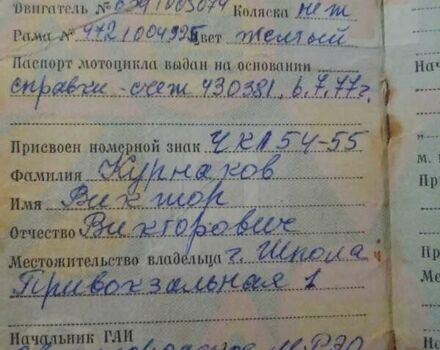 Двигатель № Коляска нет
Рама № 4721004925 Цвет желтый
Паспорт мотоцикла выдан на основании
справки-счет 430381, 6.7.77г.
Присвоен номерной знак ЧКЛ 54-55
Фамилия Курнаков
Имя Виктор
Отчество Викторович
Местожительство владельца г. Шпола
Привокзальная 1
Начальник ГАИ